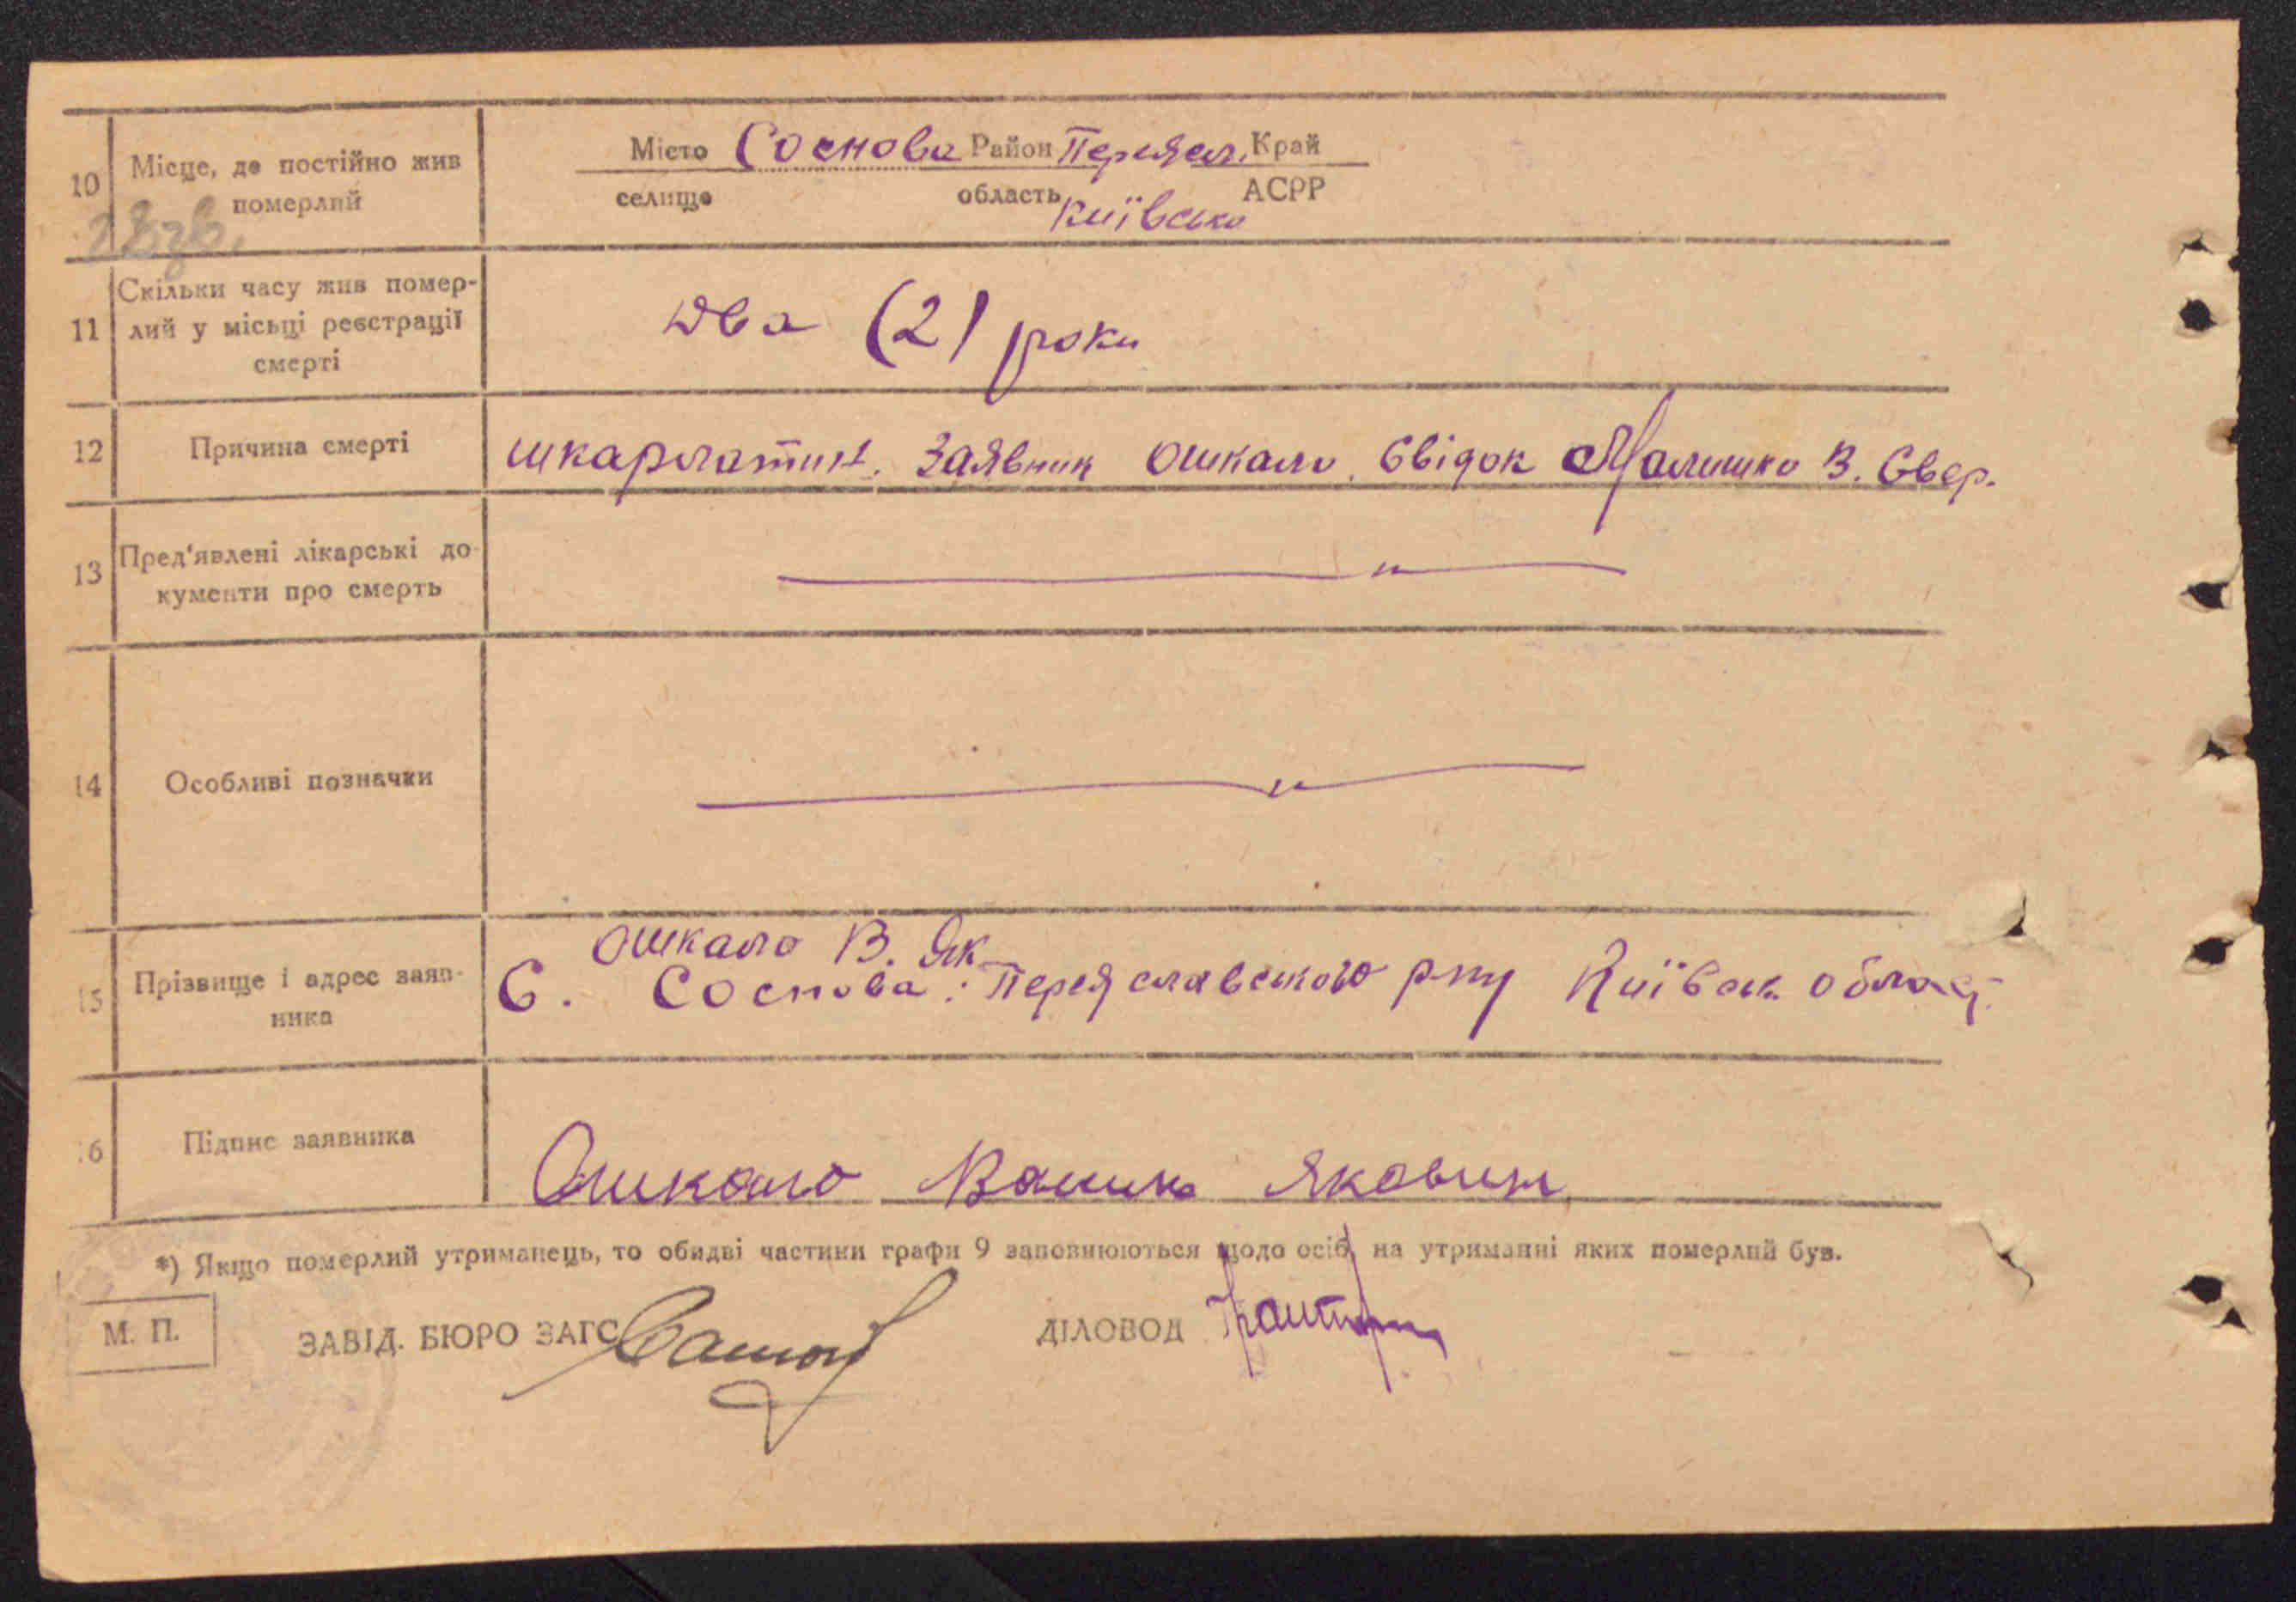 10 Місце, де постійно жив
померлий
Місто Соснова Район Переясл. Край
селище область Київська АСРР
11 Скільки часу жив помер-
лий у місьці реєстрації
смерті
Два (2) роки
12 Причина смерті
шкарлатин. Заявник Ошкало. Свідок Малишко В. Свер.
13 Пред'явлені лікарські до-
кументи про смерть
14 Особливі позначки
15 Прізвище і адрес заяв-
ника
Ошкало В. Як.
С. Соснова: Переяславського р-ну Київськ. област.
16 Підпис заявника
Ошкало Яковин
*) Якщо померлий утриманець, то обидві частини графи 9 заповнюються щодо осіб, на утриманні яких померлий був.
М. П.
ЗАВІД. БЮРО ЗАГС
ДІЛОВОД